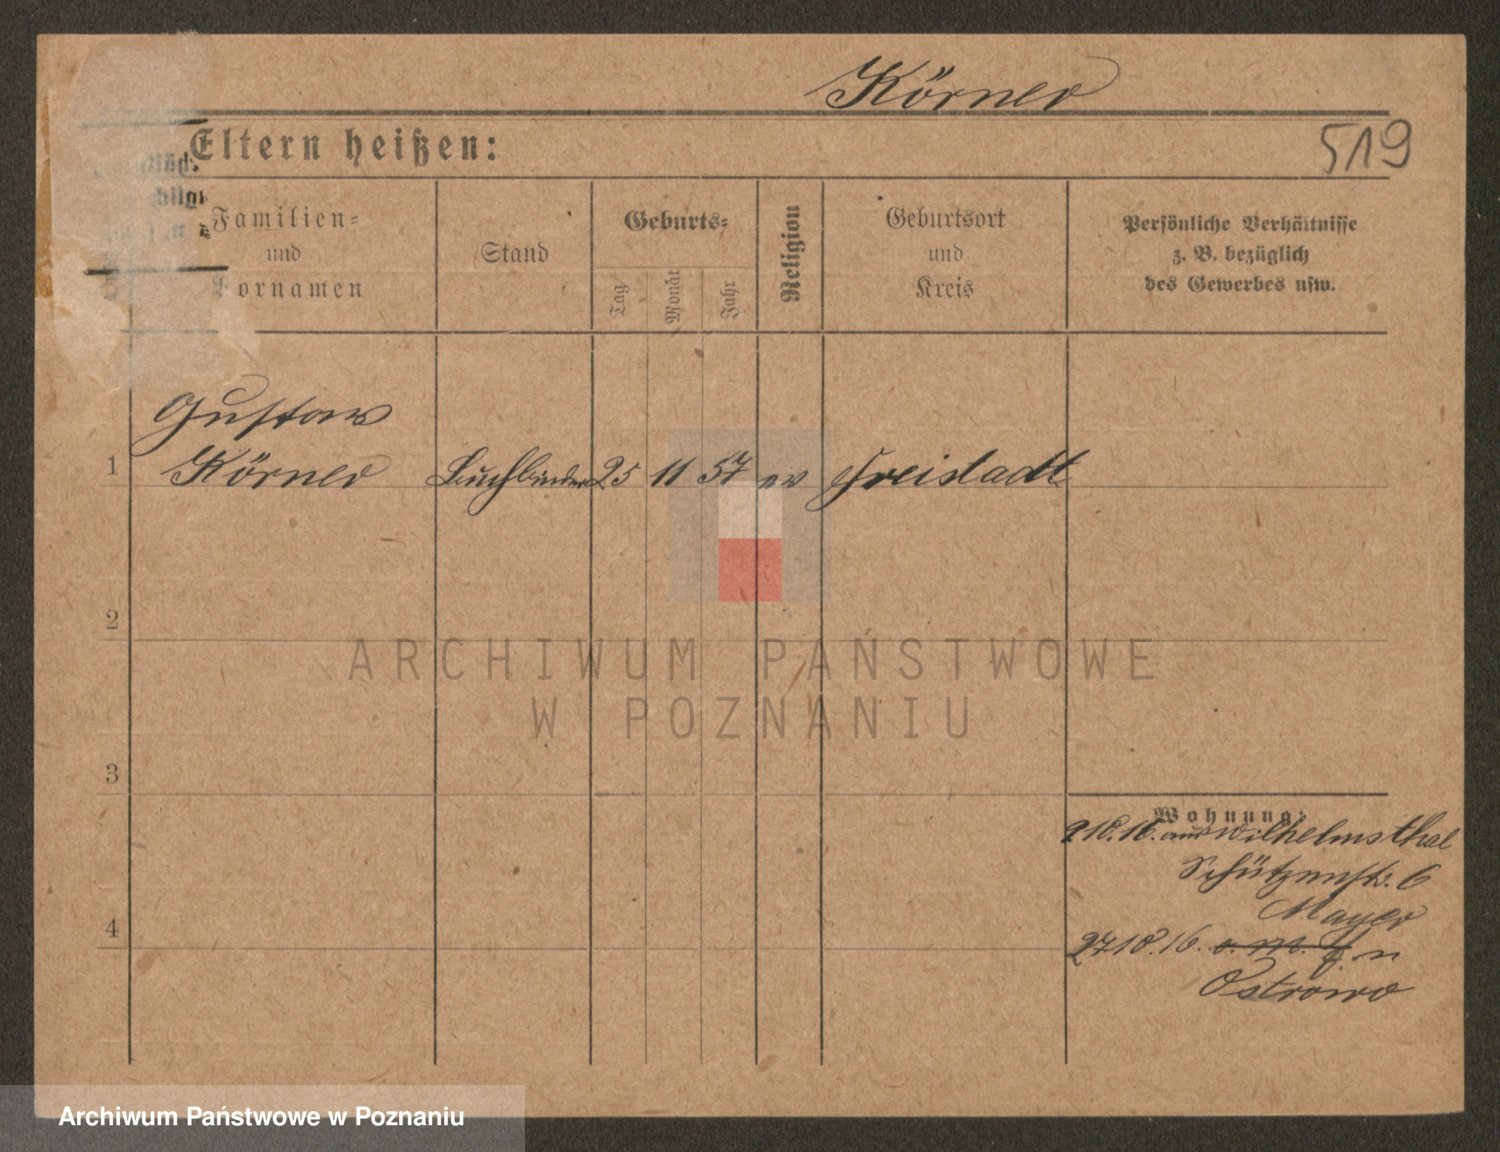 Körner
Eltern heißen:
519
Familien-
und
Vornamen
Stand
Geburts-
Tag
Monat
Jahr
Religion
Geburtsort
und
Kreis
Persönliche Verhältnisse
z. B. bezüglich
des Gewerbes usw.
Gustav
1 Körner Buchbinder 25 11 57 ev Freistadt
2
ARCHIWUM PAŃSTWOWE
W POZNANIU
3
Wohnung:
10. 16. aus Wilhelmsthal
Schützenstr. 6
Mayer
4
27 10. 16. n
Ostrowo
Archiwum Państwowe w Poznaniu